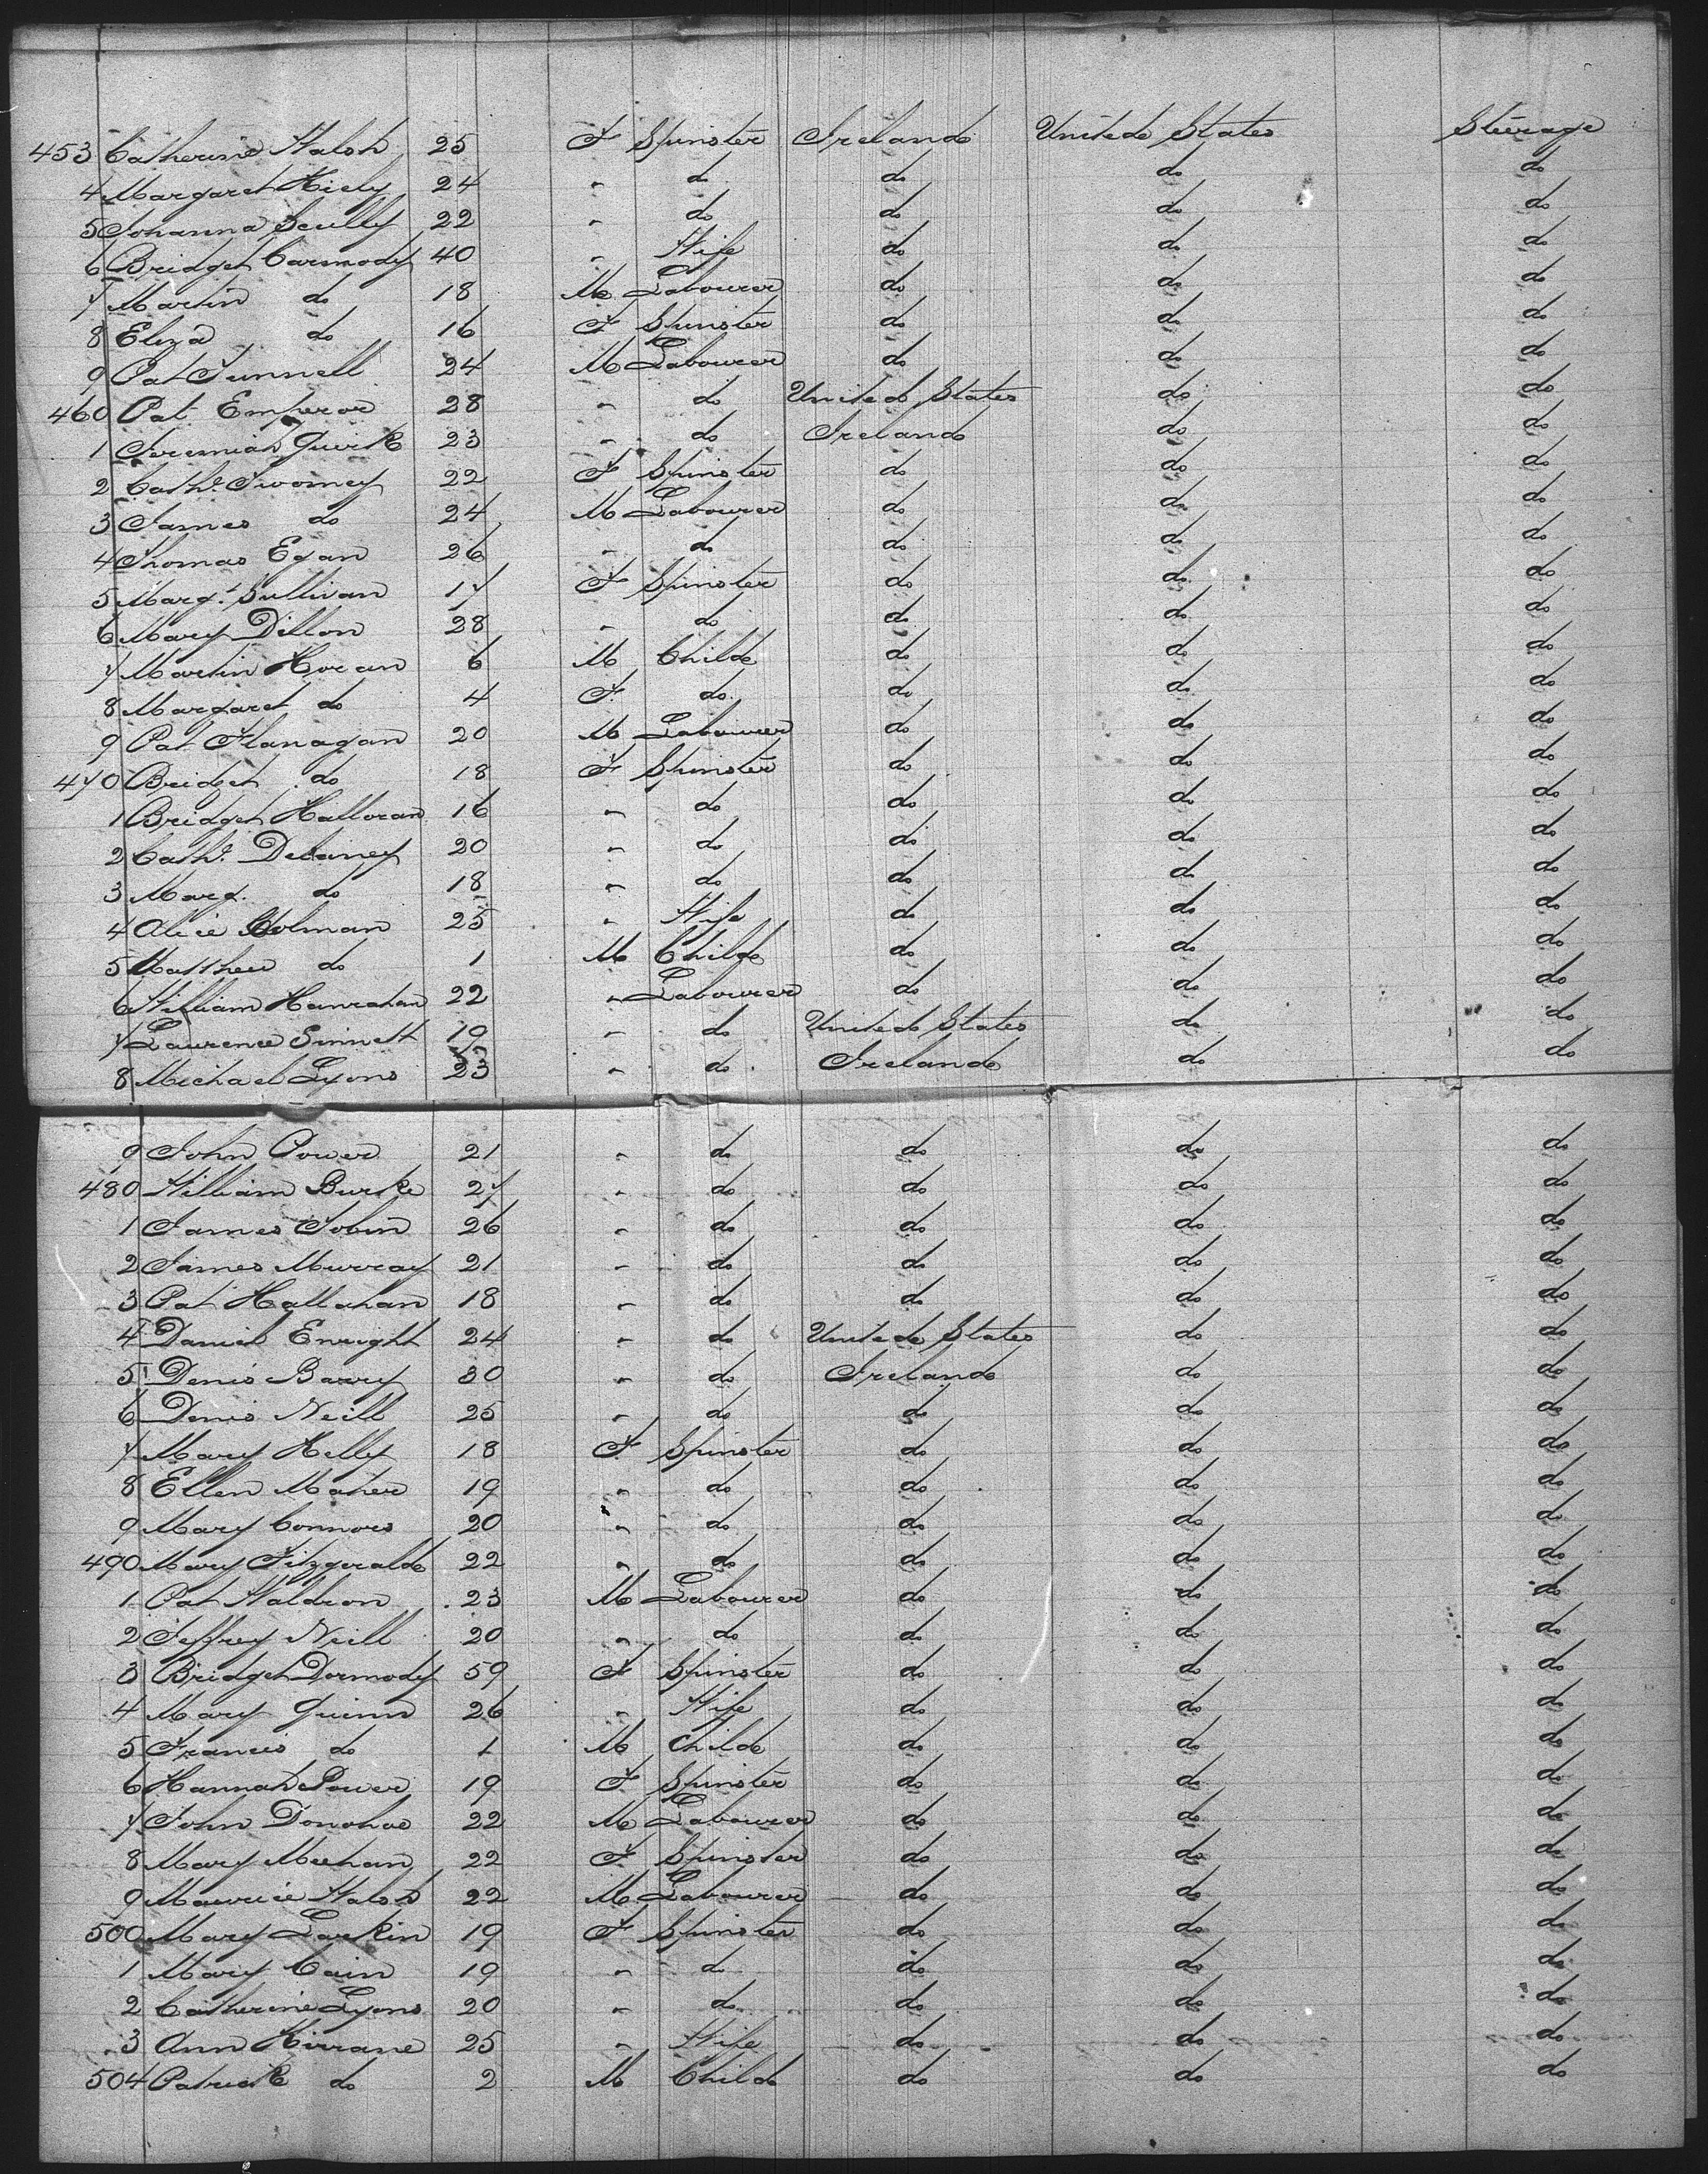 453 Catherine Walsh 25 F Spinster Ireland United States Steerage
4 Margaret Kiely 24 " do do do do
5 Johanna Scully 22 " do do do do
6 Bridget Carmody 40 " Wife do do do
7 Martin do 18 M Labourer do do do
8 Eliza do 16 F Spinster do do do
9 Pat Tunnell 24 M Labourer do do do
460 Pat Emperor 28 " do United States do do
1 Jeremiah Quirk 23 " do Ireland do do
2 Cathe Twomey 22 F Spinster do do do
3 James do 24 M Labourer do do do
4 Thomas Egan 26 " do do do do
5 Margt Sullivan 17 F Spinster do do do
6 Mary Dillon 28 " do do do do
7 Martin Horan 6 M Child do do do
8 Margaret do 4 F do do do do
9 Pat Flanagan 20 M Labourer do do do
470 Bridget do 18 F Spinster do do do
1 Bridget Halloran 16 " do do do do
2 Cathe Delaney 20 " do do do do
3 Marg. do 18 " do do do do
4 Alice Colman 25 " Wife do do do
5 Matthew do 1 M Child do do do
6 William Hanrahan 22 " Labourer do do do
7 Laurence Sinnett 19 " do United States do do
8 Michael Lyons 23 " do Ireland do do
9 John Power 21 " do do do do
480 William Burke 27 " do do do do
1 James Tobin 26 " do do do do
2 James Murray 21 " do do do do
3 Pat Hallahan 18 " do do do do
4 Daniel Enright 24 " do United States do do
5 Denis Barry 30 " do Ireland do do
6 Denis Neill 25 " do do do do
7 Mary Kelly 18 F Spinster do do do
8 Ellen Maher 19 " do do do do
9 Mary Connors 20 " do do do do
490 Mary Fitzgerald 22 " do do do do
1 Pat Waldron 23 M Labourer do do do
2 Jeffrey Neill 20 " do do do do
3 Bridget Dermody 59 F Spinster do do do
4 Mary Quinn 26 " Wife do do do
5 Francis do 1 M Child do do do
6 Hannah Power 19 F Spinster do do do
7 John Donohoe 22 M Labourer do do do
8 Mary Meehan 22 F Spinster do do do
9 Maurice Walsh 22 M Labourer do do do
500 Mary Larkin 19 F Spinster do do do
1 Mary Cain 19 " do do do do
2 Catherine Lyons 20 " do do do do
3 Ann Kirrane 25 " Wife do do do
504 Patrick do 2 M Child do do do